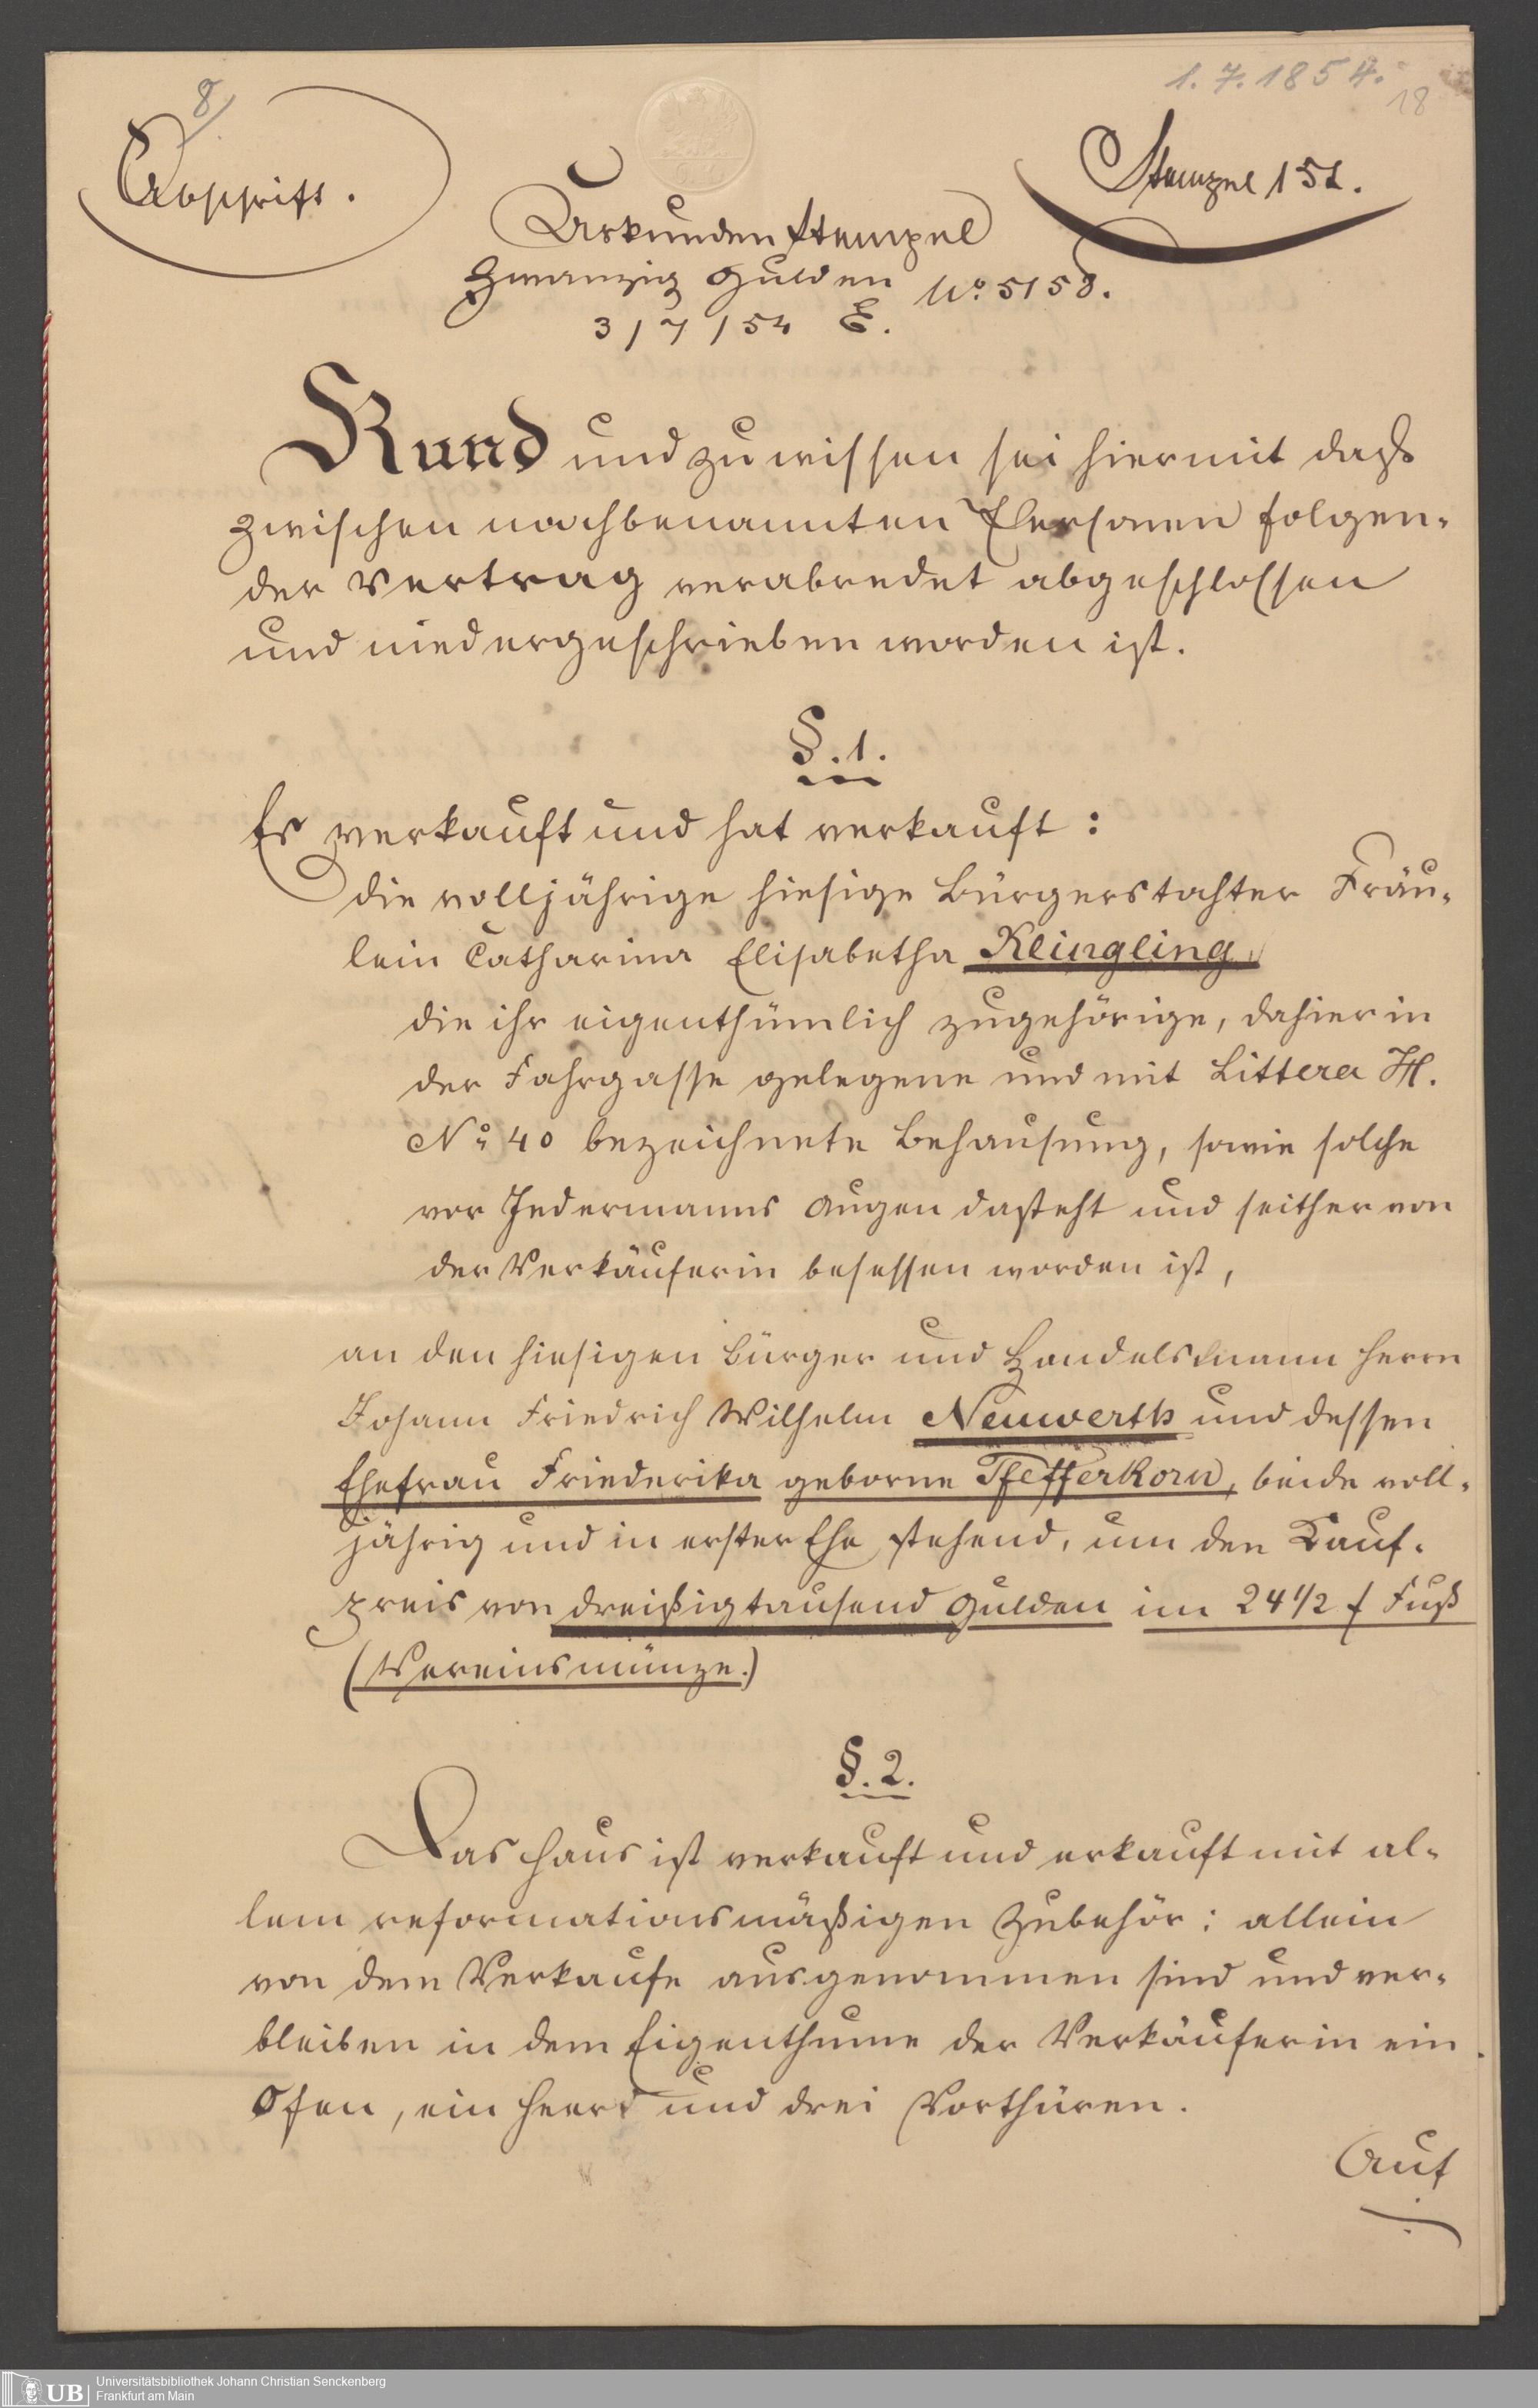 8/
1.7.1854.
18
Abschrift.
Stempel 15x.
Urkunden Stempel
Zwanzig Gulden No. 5158.
3/7/54 E.
Kund und zu wissen sei hiermit daß
zwischen nachbenannten Personen folgen-
der Vertrag verabredet abgeschlossen
und niedergeschrieben worden ist.
§. 1.
Es verkauft und hat verkauft:
die volljährige hiesige Bürgerstochter Fräu-
lein Catharina Elisabetha Klingling,
die ihr eigenthümlich zugehörige, dahier in
der Fahrgasse gelegene und mit Littera H.
No. 40 bezeichnete Behausung, sowie solche
vor Jedermanns Augen dasteht und seither von
der Verkäuferin besessen worden ist,
an den hiesigen Bürger und Handelsmann Herrn
Johann Friedrich Wilhelm Neuwerth und dessen
Ehefrau Friederika geborne Pfefferkorn, beide voll-
jährig und in erster Ehe stehend, um den Kauf-
preis von dreißigtausend Gulden im 24 1/2 f Fuß
(Vereinsmünze.)
§. 2.
Das Haus ist verkauft und erkauft mit al-
lem reformationsmäßigen Zubehör; allein
von dem Verkaufe ausgenommen sind und ver-
bleiben in dem Eigenthume der Verkäuferin ein
Ofen, ein Heerd und drei Vorthüren.
Auf
UB
Universitätsbibliothek Johann Christian Senckenberg
Frankfurt am Main